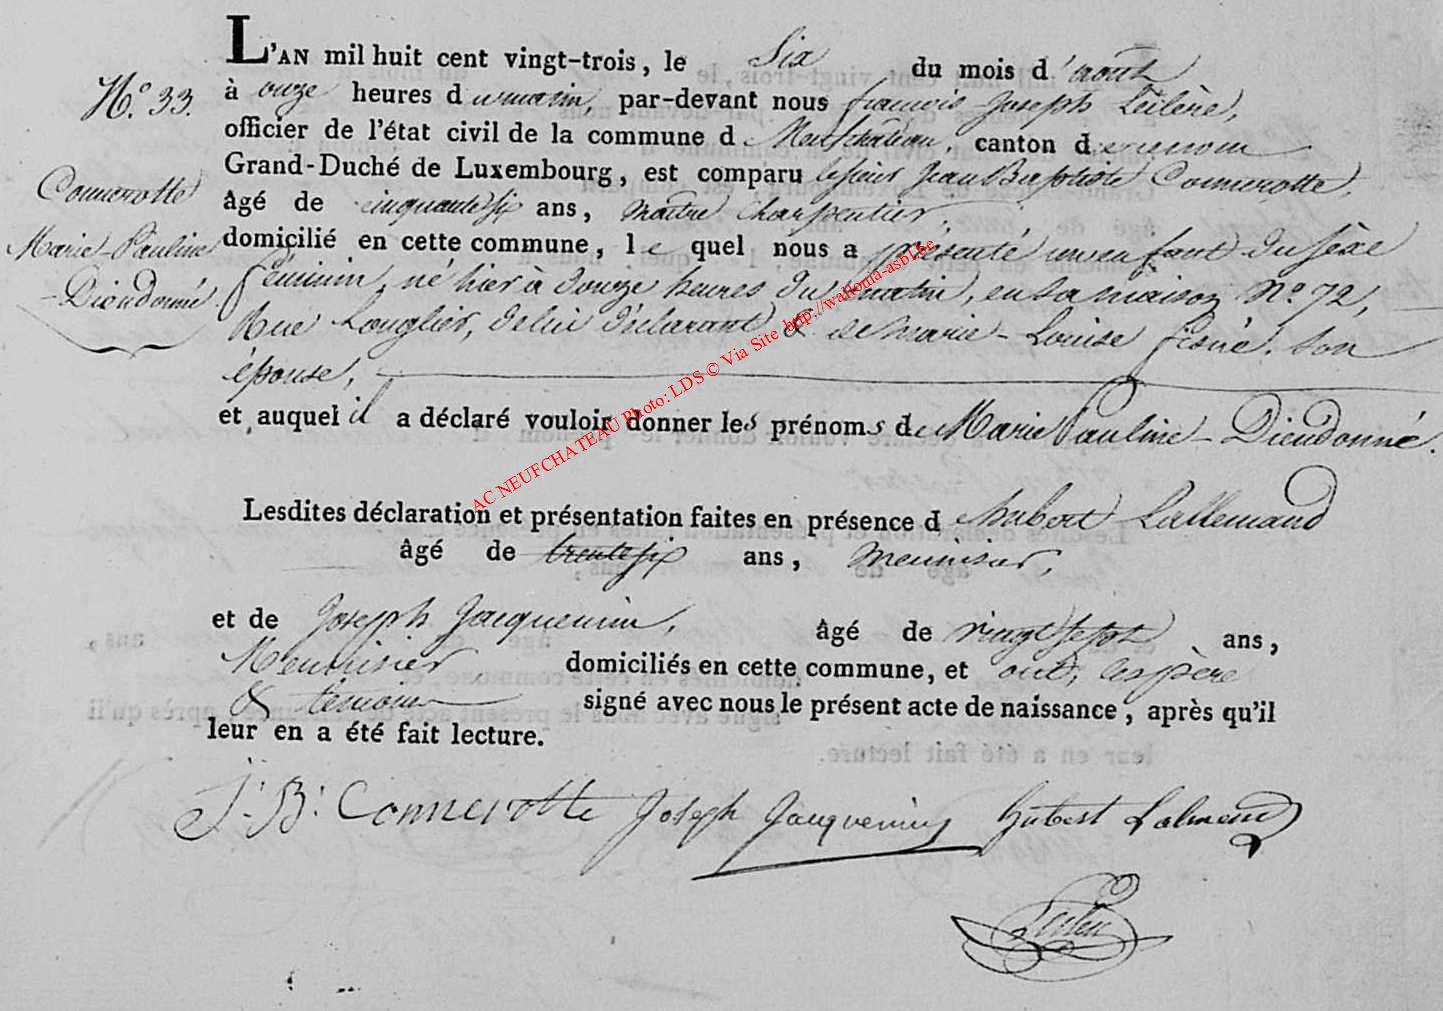 L'AN mil huit cent vingt-trois, le Six du mois d'août
N.° 33. à onze heures du matin, par-devant nous françois Joseph
officier de l'état civil de la commune de Neufchâteau, canton de
Grand-Duché de Luxembourg, est comparu le sieur Jean Baptiste Connerotte,
Connerotte âgé de cinquante six ans, maître Charpentier,
Marie-Pauline domicilié en cette commune, le quel nous a présenté un enfant du sexe
-Dieudonné. féminin, né hier à douze heures du matin, en sa maison N.° 72,
Rue Longlier, de lui déclarant & de Marie-Louise son
épouse,
et auquel il a déclaré vouloir donner les prénoms de Marie Pauline-Dieudonné.
Lesdites déclaration et présentation faites en présence d hubert Lallemand
âgé de trente six ans, menuisier,
et de Joseph Jacquemin, âgé de vingt sept ans,
Menuisier domiciliés en cette commune, et ont, les père
& témoins signé avec nous le présent acte de naissance, après qu'il
leur en a été fait lecture.
J. B. Connerotte Joseph Jacquemin Hubert Lalmend
AC NEUFCHATEAU Photo: LDS © Via Site http://wallonia-asbl.be